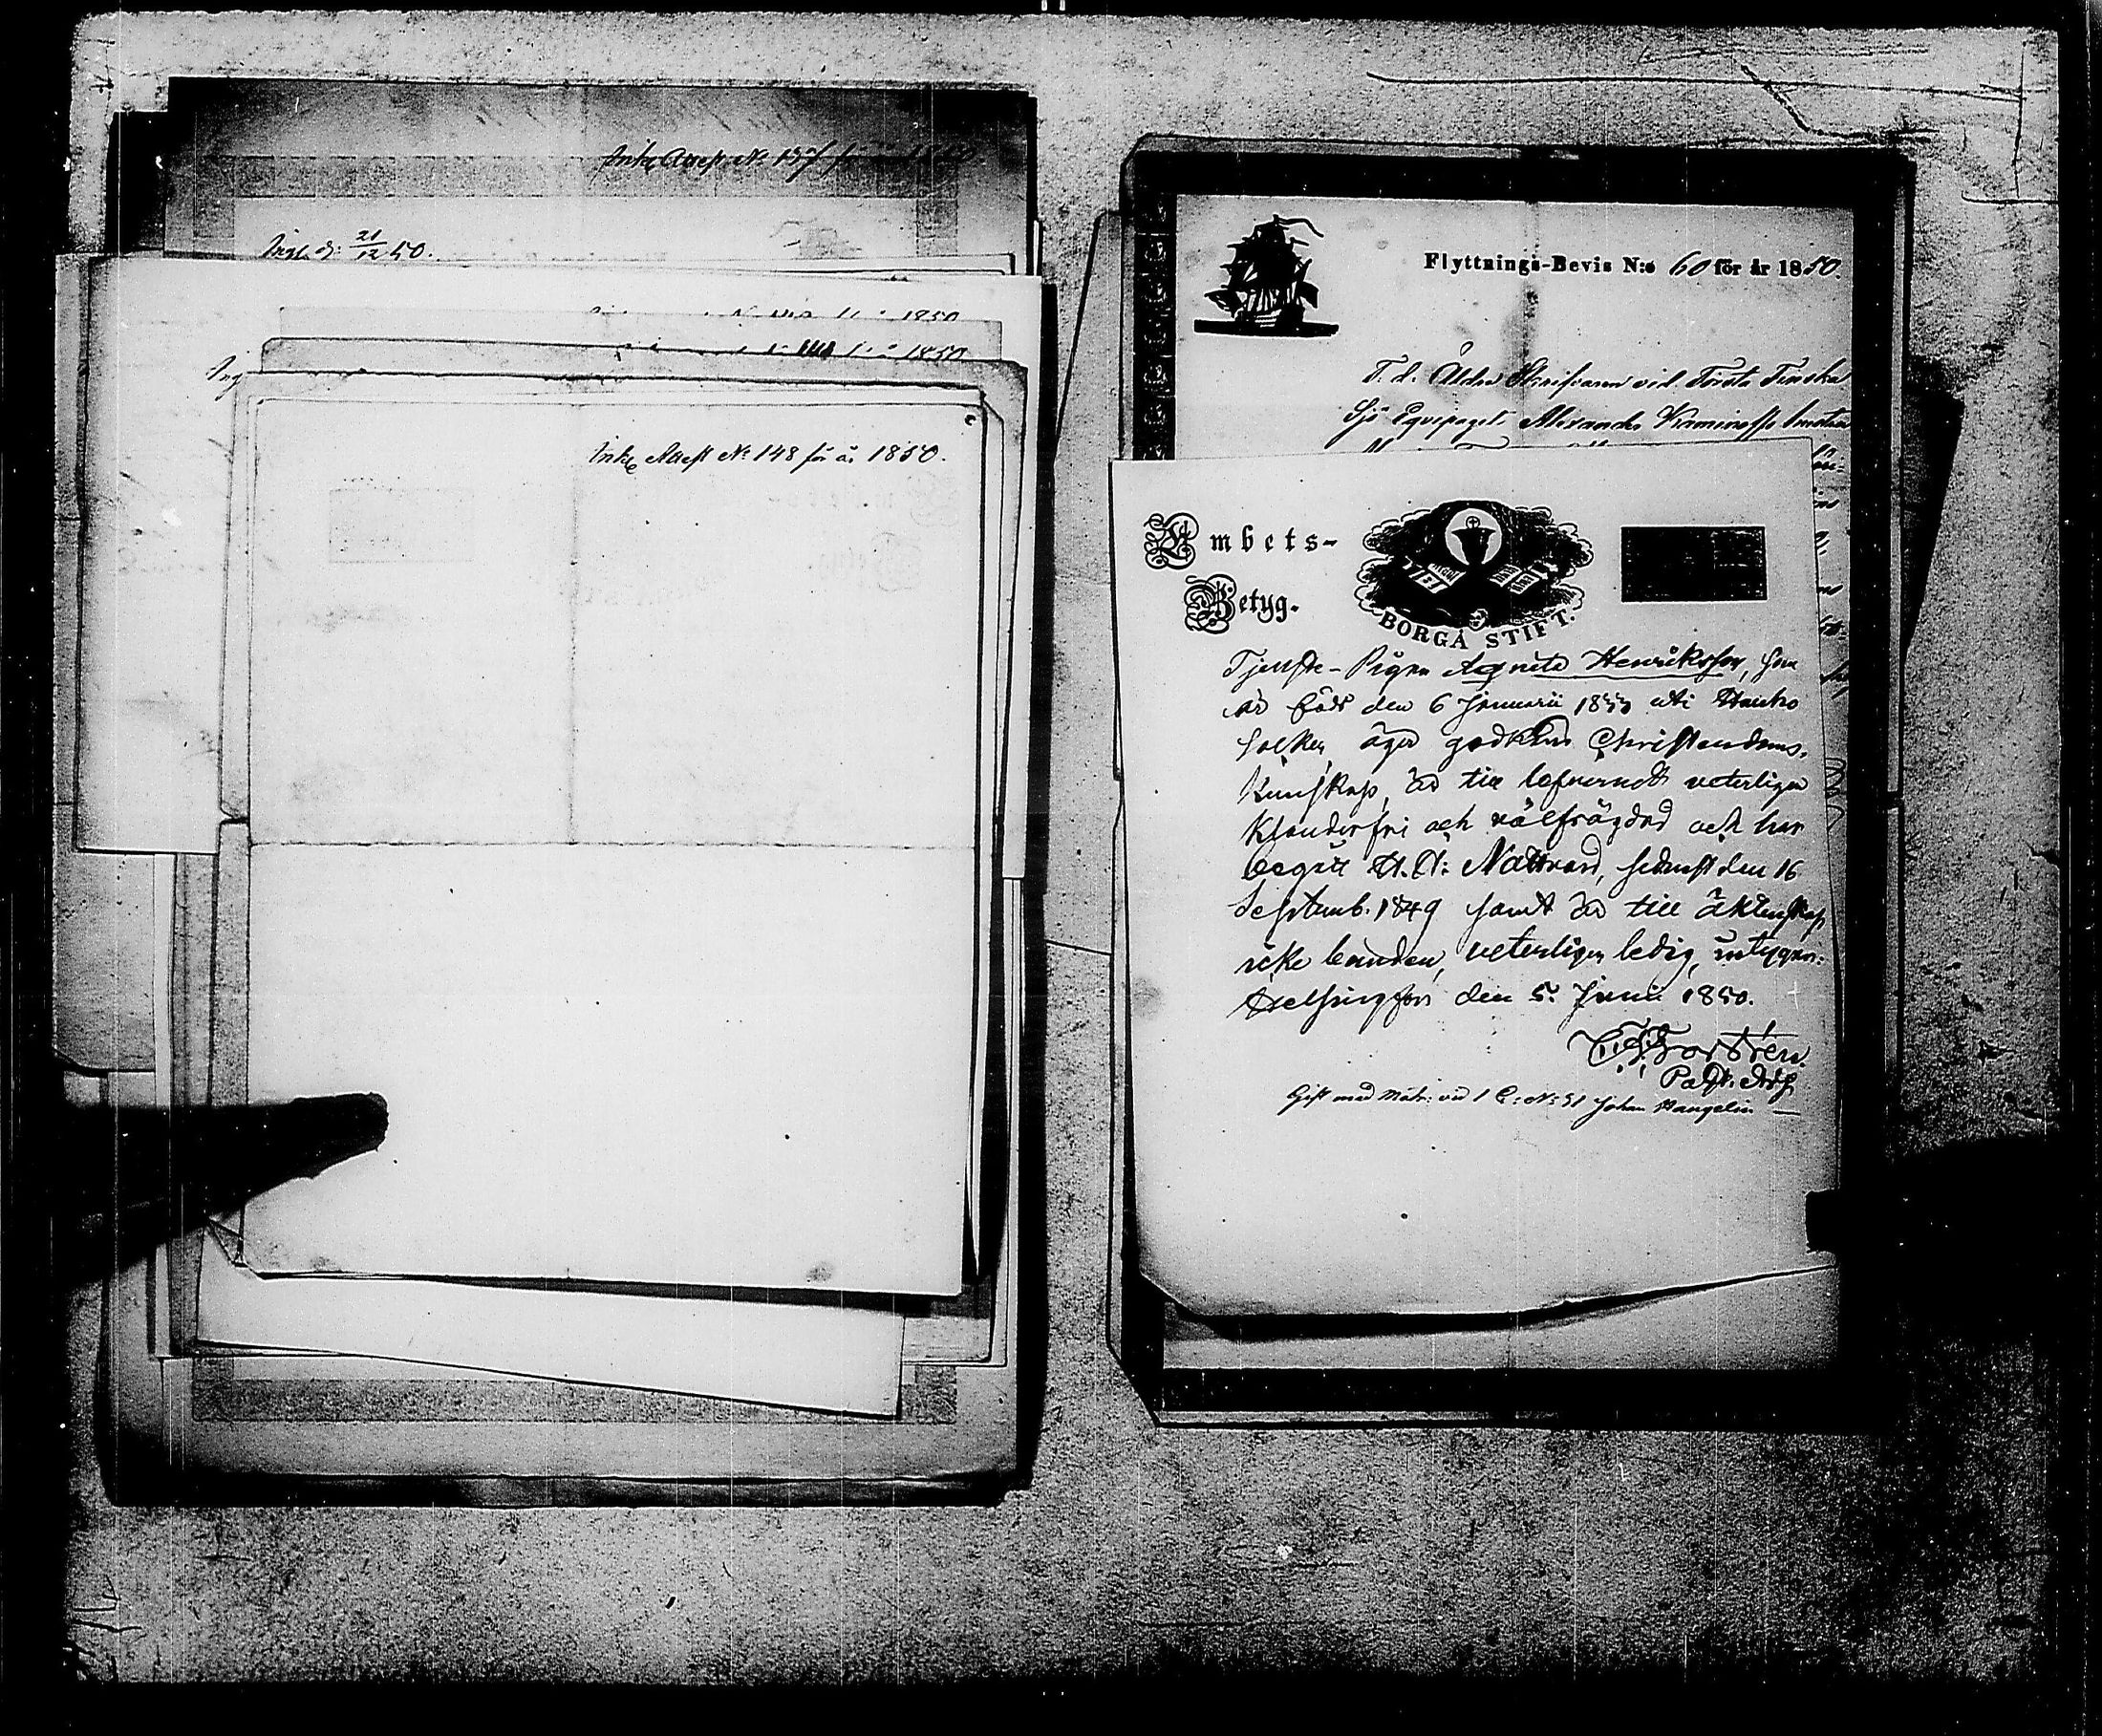 Inkō Attest No 157 för år 1850
Ingl. d: 21/12 50.
1850
1850
Ing
Inkō Attest No 148 för år 1850.
Flyttnings-Bevis N:o 60 för år 1850.
T. d. Äldre Skrifvaren vid Första Finska
Sjö Equipaget Alexander
Embets-
Betyg.
BORGÅ STIFT.
Tjenste-Pigan Agneta Henriksson, som
är född den 6 Januarii 1833 uti Hauho
Socken, äger godkänd Christendoms-
Kunskap, är till lefvernet veterligen
Klanderfri och välfrägdad och har
begått H.H: Nattvard, sednast den 16
Septemb. 1849 samt är till äktenskap
icke bunden, veterligen ledig, intygar:
Helsingfors den 5 Junii 1850.
Past. Adj.
Gift med Matr: vid 1 C: No: 51 Johan Wangelin —